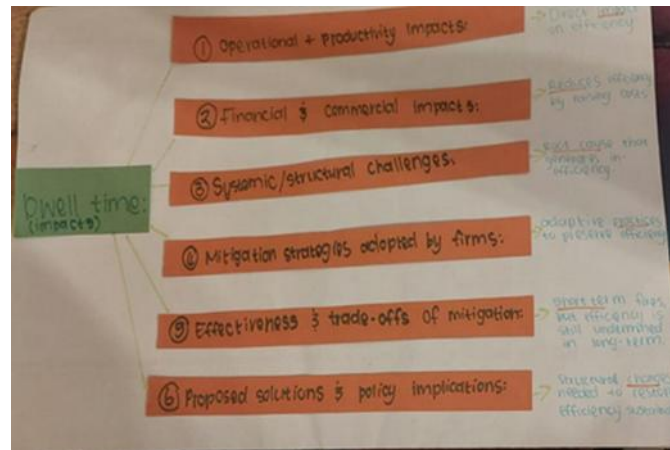 Dwell time:
(impacts)
① Operational + Productivity Impacts:
Direct
on efficiency
② Financial & Commercial Impacts:
Reduces efficiency
by raising costs
③ Systemic/structural challenges.
root cause that
generates in-
efficiency.
④ Mitigation strategies adopted by firms:
adaptive
to preserve efficiency
⑤ Effectiveness & trade-offs of mitigation:
short term fixes,
but efficiency is
still undermined
in long-term.
⑥ Proposed solutions & policy implications:
Structural changes
needed to
efficiency